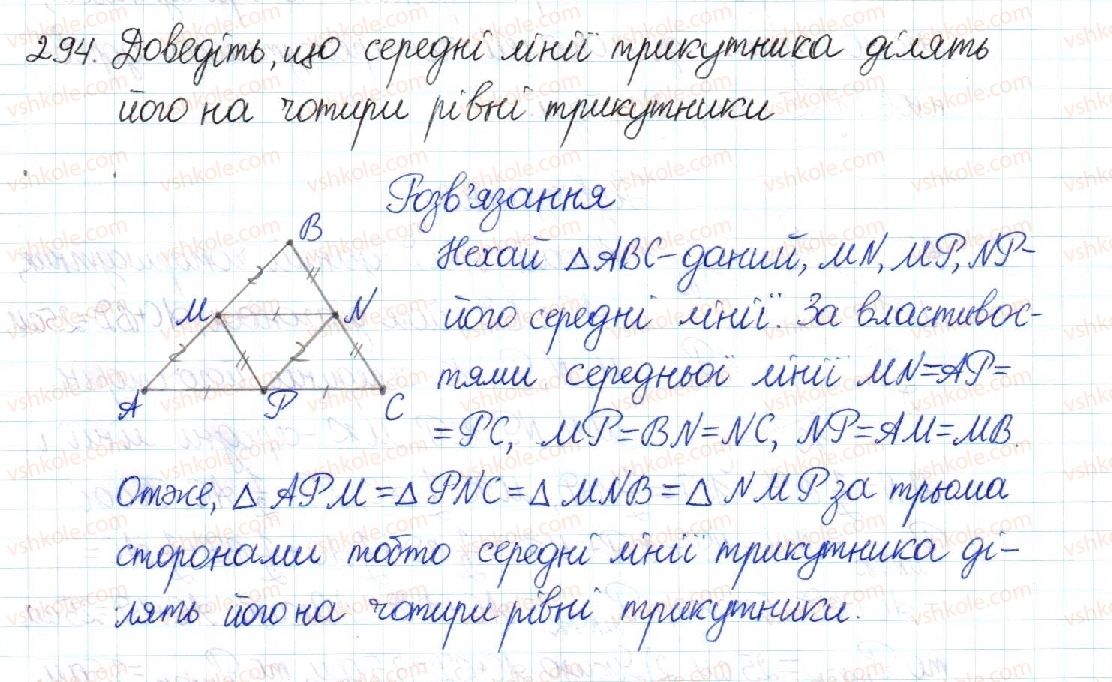 294. Доведіть, що середні лінії трикутника ділять
його на чотири рівні трикутники
Розв'язання
B
M
N
A
P
C
Нехай △ABC - даний, MN, MP, NP -
його середні лінії. За властивос-
тями середньої лінії MN = AP =
= PC, MP = BN = NC, NP = AM = MB.
Отже, △ APM = △ PNC = △ MNB = △ NMP за трьома
сторонами тобто середні лінії трикутника ді-
лять його на чотири рівні трикутники.
vshkole.com